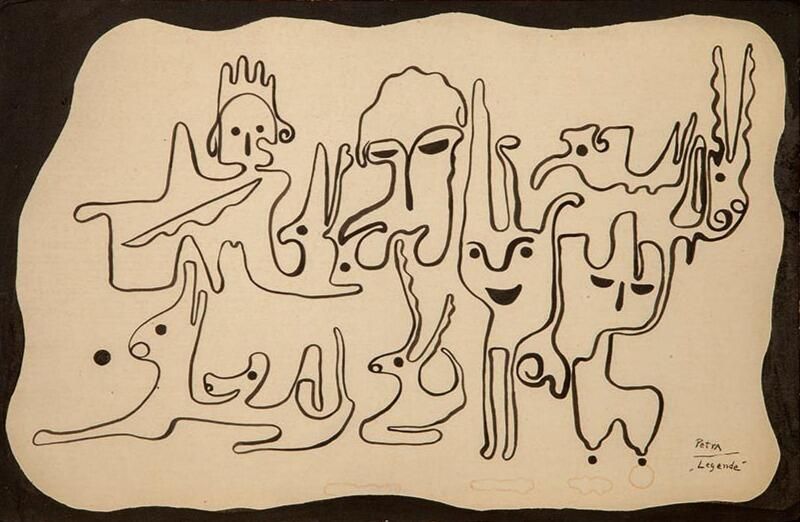 Petra
„Legende"